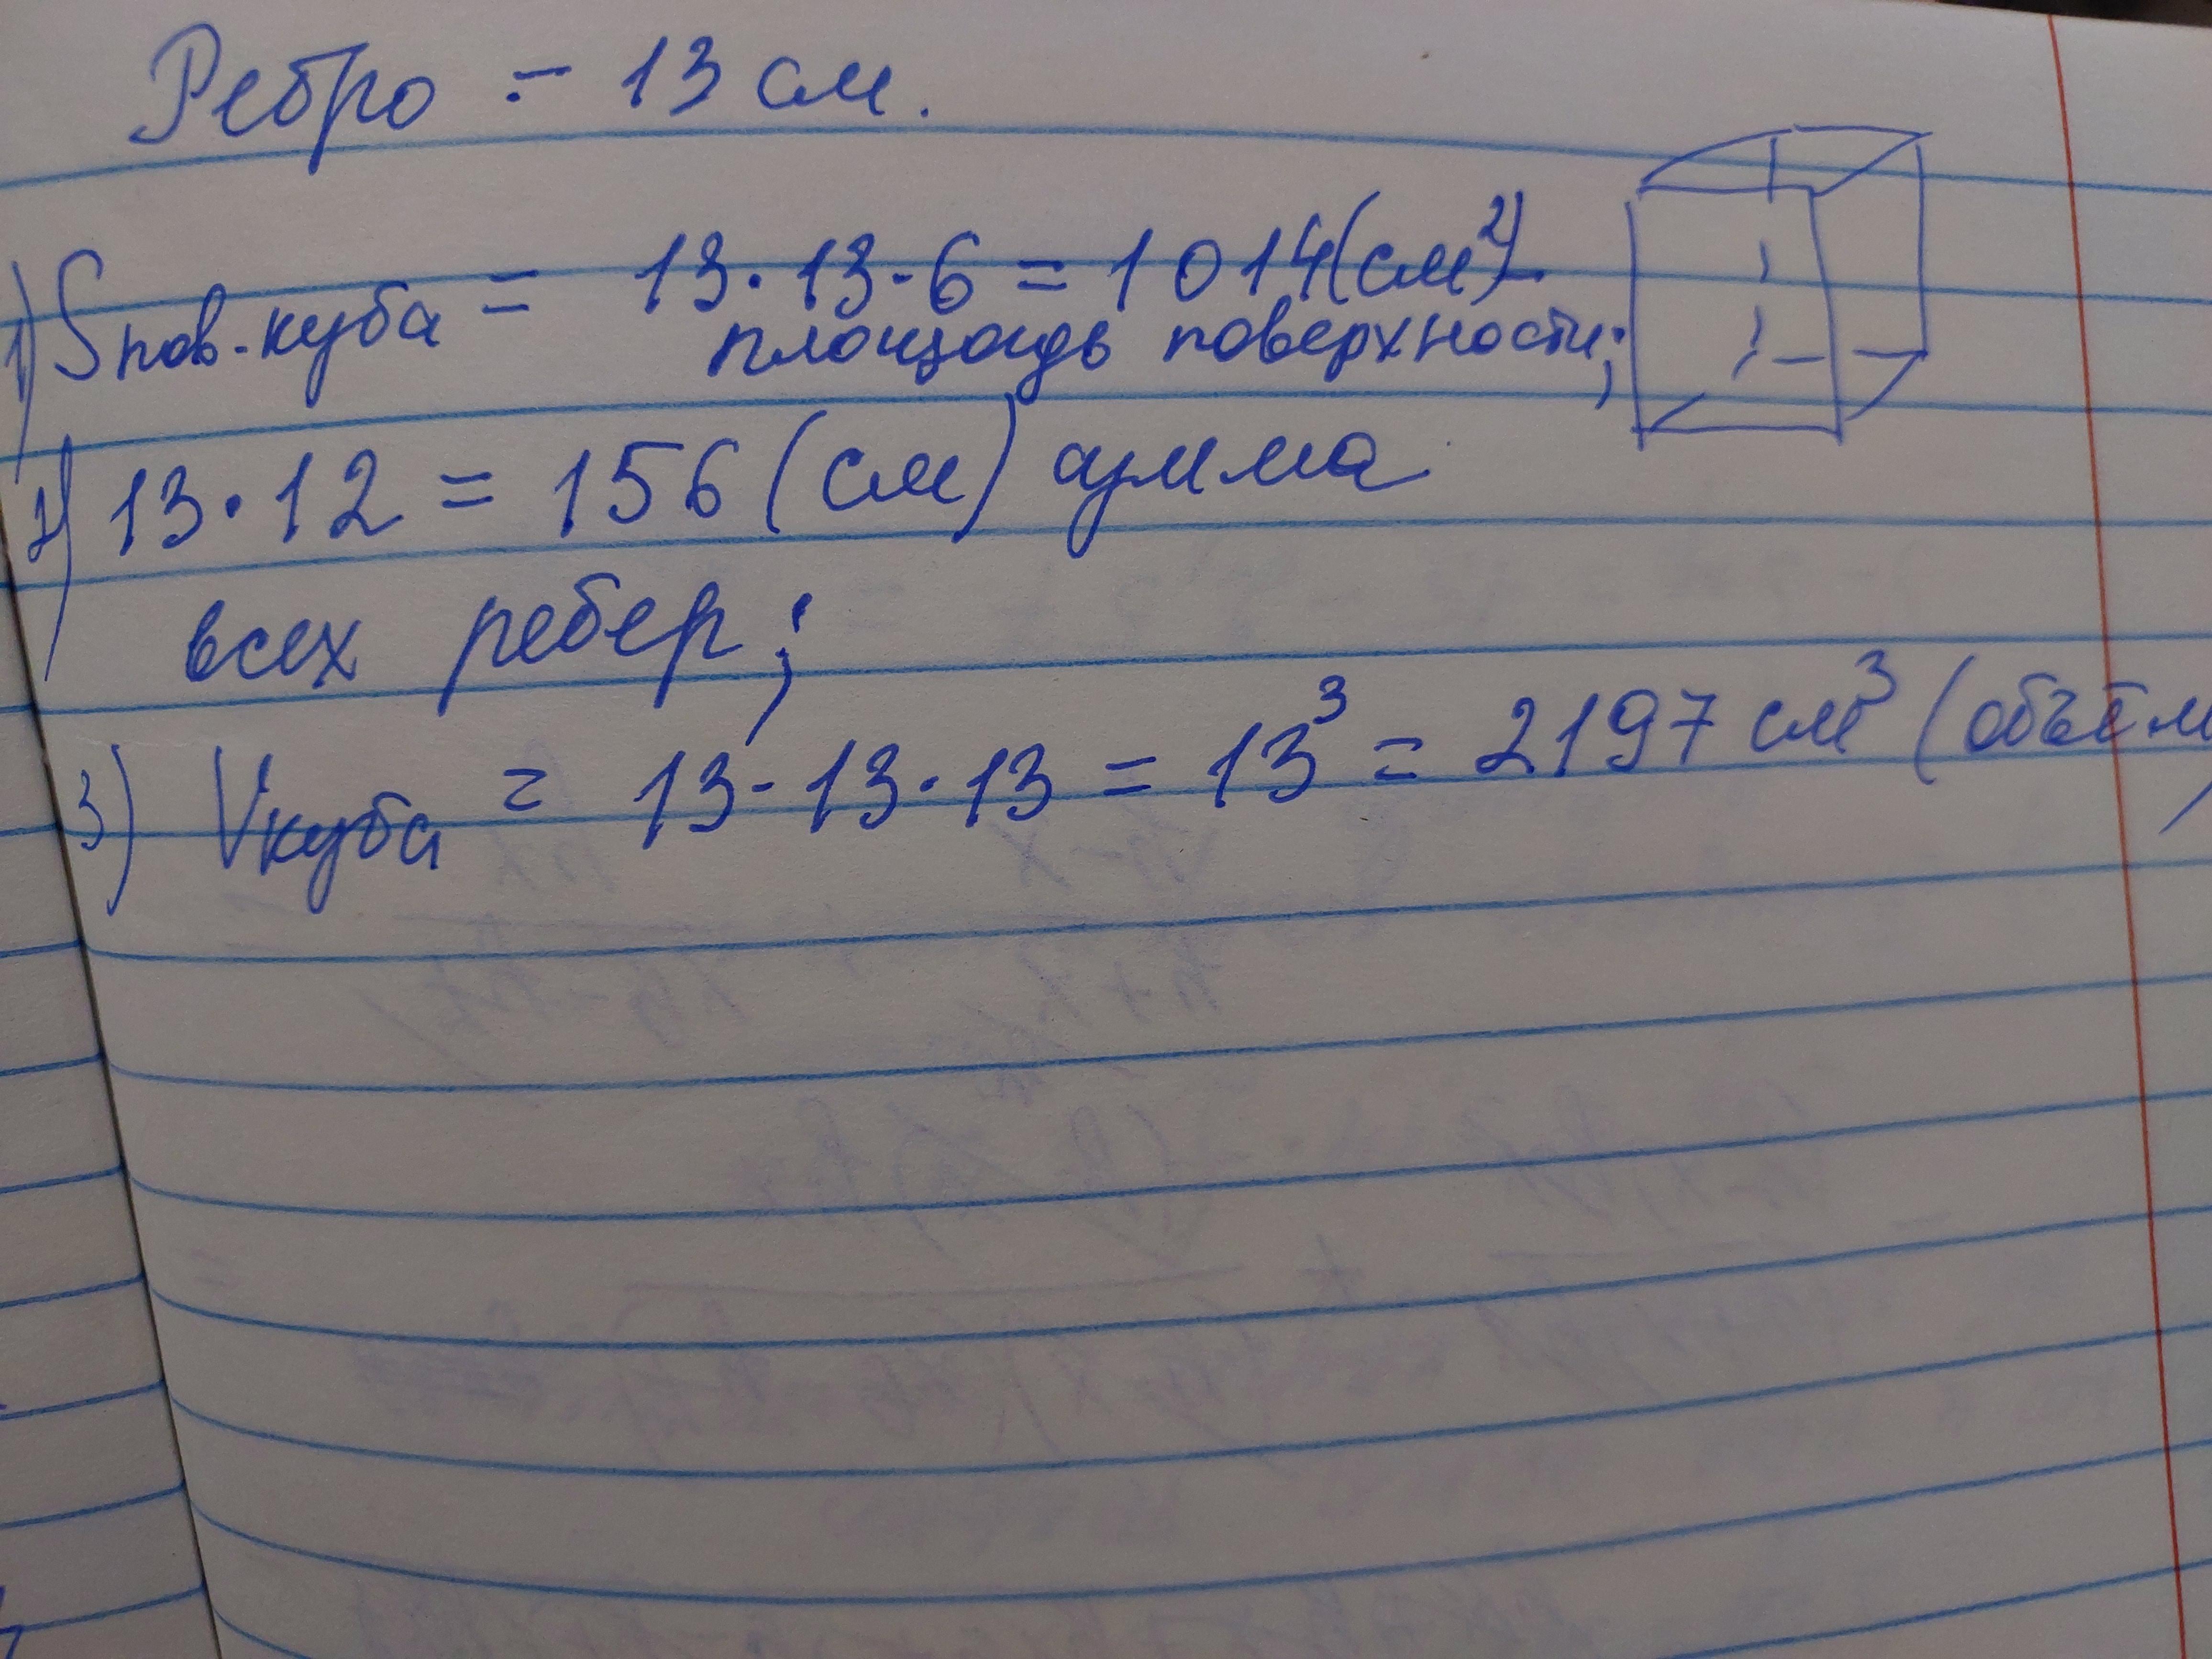 Ребро – 13 см.
1) Sпов.куба = 13·13·6 = 1014(см²)
площадь поверхности;
2) 13·12 = 156 (см) сумма
всех ребер;
3) Vкуба = 13·13·13 = 13³ = 2197 см³ (объём